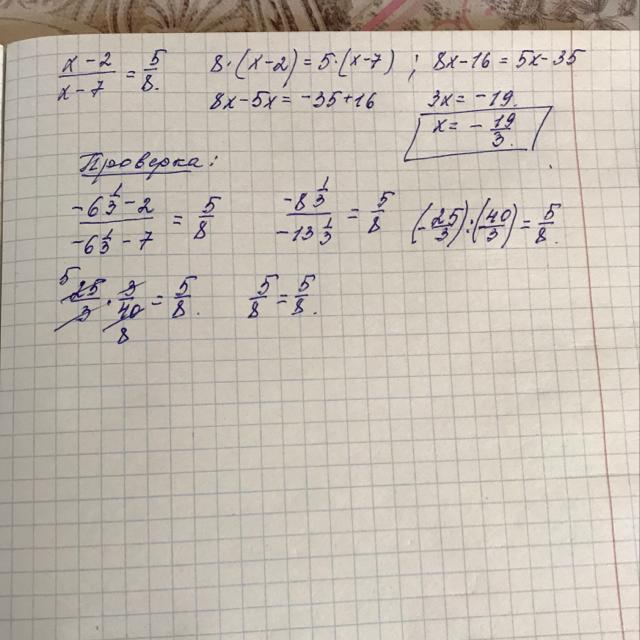 (x-2)/(x-7) = 5/8. 8·(x-2)=5·(x-7) ; 8x-16=5x-35
8x-5x=-35+16 3x=-19.
x= - 19/3.
Проверка:
(-6 1/3 - 2)/(-6 1/3 - 7) = 5/8 (-8 1/3)/(-13 1/3) = 5/8 (-25/3):(40/3)=5/8.
5 25/3 · 3/40 8 = 5/8. 5/8 = 5/8.